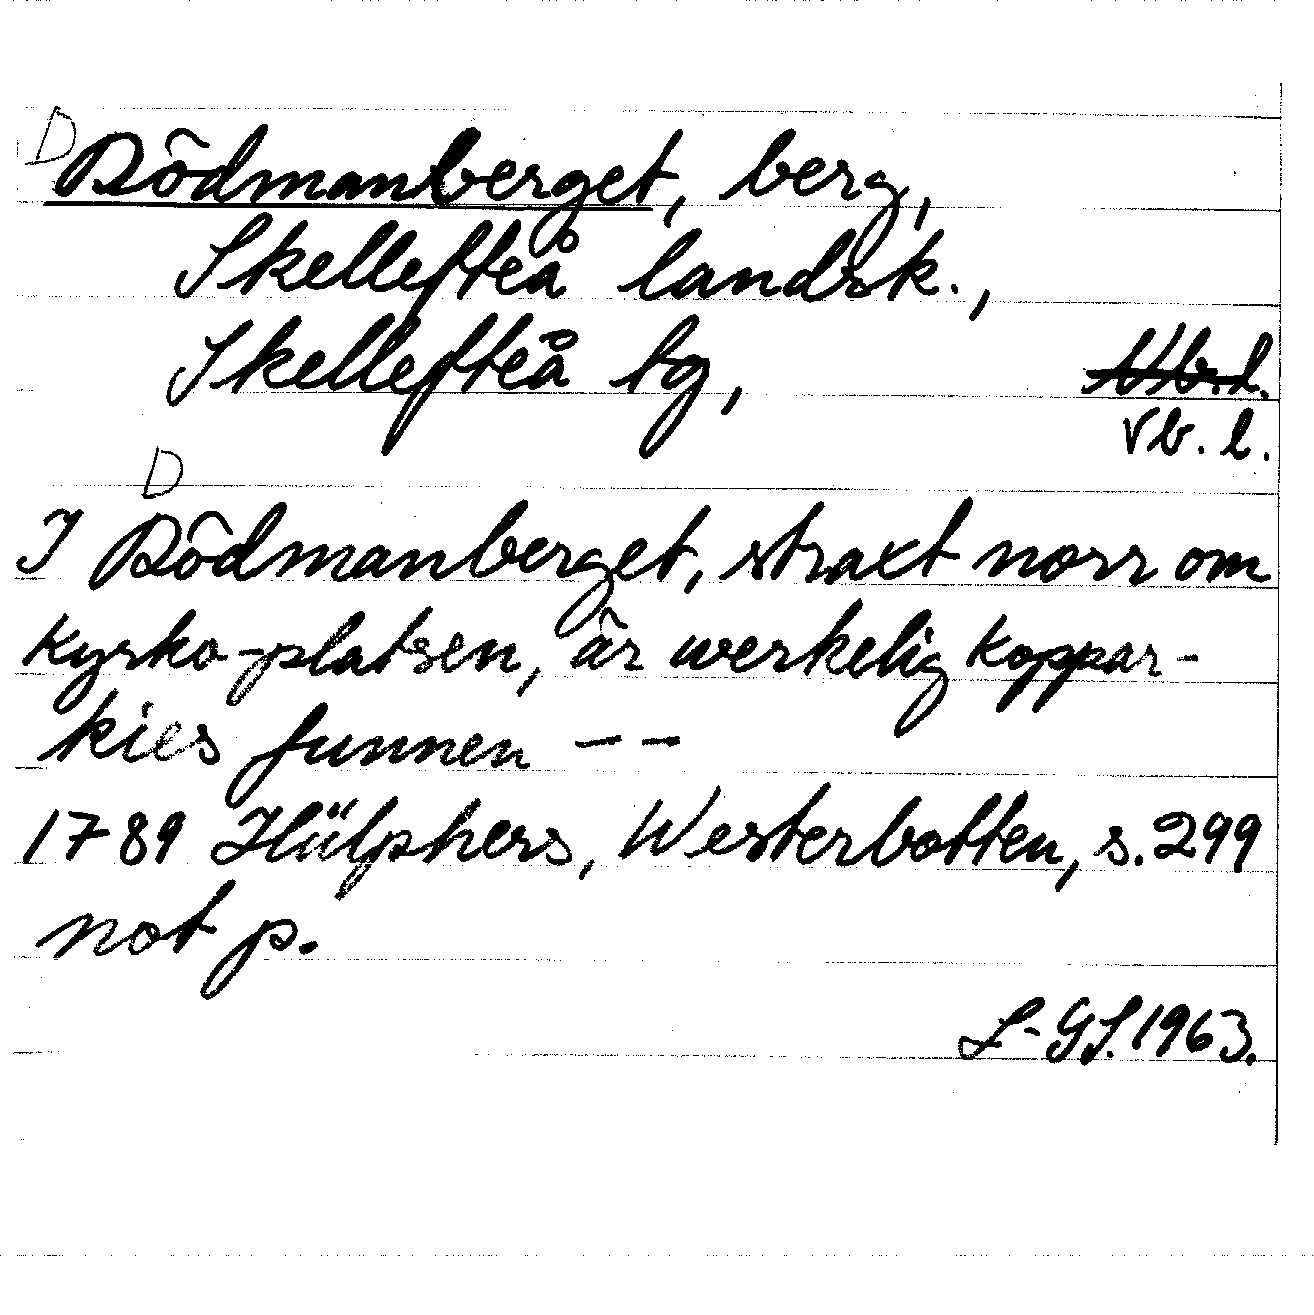 D
Dödmanberget, berg,
Skellefteå landsk.,
Skellefteå tg,
Vb. l.
D
I Dödmanberget, straxt norr om
Kyrko-platsen, är werkelig Koppar-
kies funnen --
1789 Hülphers, Westerbotten, s. 299
not p.
L-GS. 1963.